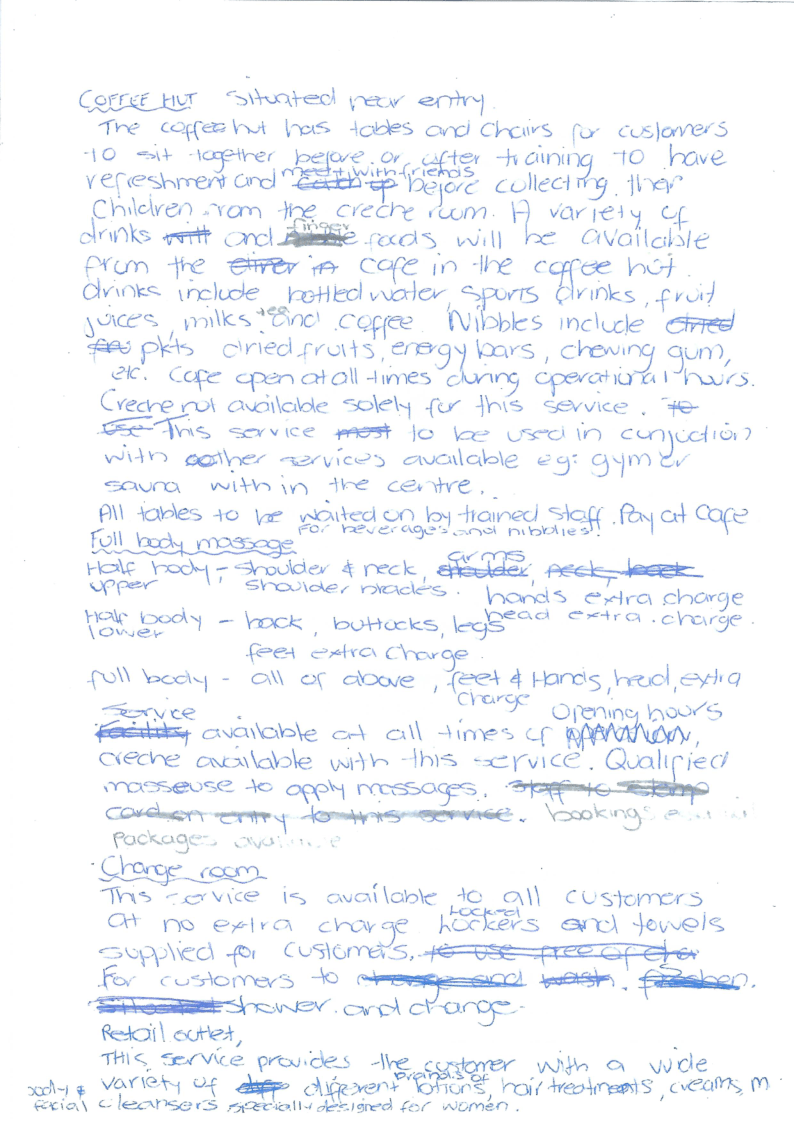 COFFEE HUT Situated near entry.
The coffee hut has tables and chairs for customers
to sit together before or after training to have
meet with friends
refreshment and catch up before collecting their
Children from the creche room. A variety of
finger
drinks will and foods will be available
from the cafe in the coffee hut.
drinks include bottled water, sports drinks, fruit
juices, milks tea and coffee. Nibbles include dried
pkts dried fruits, energy bars, chewing gum,
etc. Cafe open at all times during operational hours.
Creche not available solely for this service. To
use This service must to be used in conjuction
with other services available eg: gym or
sauna with in the centre.
All tables to be waited on by trained staff. Pay at Cafe
for beverages and nibblies!
Full body massage
arms
Half body - shoulder & neck, shoulder, neck, back
upper shoulder blades. hands extra charge
head extra charge.
Half body - back, buttocks, legs
lower
feet extra charge.
full body - all of above, feet & Hands, head, extra
charge
Service Opening hours
facility available at all times of
creche available with this service. Qualified
masseuse to apply massages. Staff to stamp
card on entry to this service. bookings
Packages available
Change room
This service is available to all customers
Locked
at no extra charge lockers and towels
supplied for customers. to use free of cha
For customers to change and wash. freshen.
shower and change.
Retail outlet,
This service provides the customer with a wide
brands of
variety of different lotions, hair treatments, creams, m
body &
facial cleansers specially designed for women.